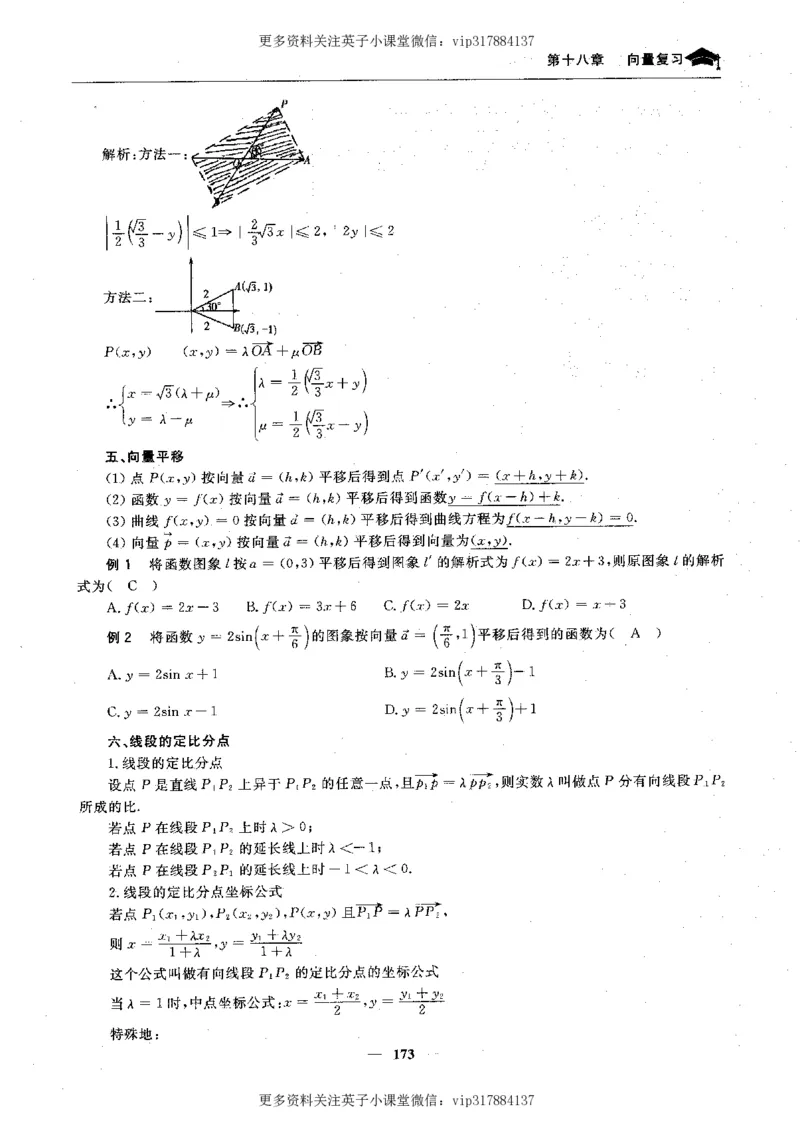 更多资料关注英子小课堂微信：vip317884137
第十八章 向量复习
解析:方法一:
P
A
|1/2(√3/3 − y)|≤1⇒|2/3√3x|≤2, 2y|≤2
方法二:
2 A(√3,1)
30°
2 B(√3,-1)
P(x,y) (x,y) = λOA + μOB
∴{x = √3(λ+μ) y = λ−μ ⇒∴{λ = 1/2(√3/3x+y) μ = 1/2(√3/3x−y)
五、向量平移
(1) 点 P(x,y) 按向量 a = (h,k) 平移后得到点 P′(x′,y′) = (x+h,y+k).
(2) 函数 y = f(x) 按向量 a = (h,k) 平移后得到函数y = f(x−h)+k.
(3) 曲线 f(x,y) = 0 按向量 a = (h,k) 平移后得到曲线方程为f(x−h,y−k) = 0.
(4) 向量 p = (x,y) 按向量 a = (h,k) 平移后得到向量为(x,y).
例 1 将函数图象 l 按 a = (0,3) 平移后得到图象 l′ 的解析式为 f(x) = 2x+3,则原图象 l 的解析
式为( C )
A. f(x) = 2x−3 B. f(x) = 3x+6 C. f(x) = 2x D. f(x) = x+3
例 2 将函数 y = 2sin(x+π/6)的图象按向量 a = (π/6,1)平移后得到的函数为( A )
A. y = 2sin x+1 B. y = 2sin(x+π/3)−1
C. y = 2sin x−1 D. y = 2sin(x+π/3)+1
六、线段的定比分点
1. 线段的定比分点
设点 P 是直线 P₁P₂ 上异于 P₁P₂ 的任意一点,且p₁p = λpp₂,则实数 λ 叫做点 P 分有向线段 P₁P₂
所成的比.
若点 P 在线段 P₁P₂ 上时 λ > 0;
若点 P 在线段 P₁P₂ 的延长线上时 λ <−1;
若点 P 在线段 P₂P₁ 的延长线上时 −1 < λ < 0.
2. 线段的定比分点坐标公式
若点 P₁(x₁,y₁),P₂(x₂,y₂),P(x,y) 且P₁P = λPP₂,
则 x = (x₁+λx₂)/(1+λ), y = (y₁+λy₂)/(1+λ)
这个公式叫做有向线段 P₁P₂ 的定比分点的坐标公式
当 λ = 1 时,中点坐标公式:x = (x₁+x₂)/2, y = (y₁+y₂)/2
特殊地:
— 173
更多资料关注英子小课堂微信：vip317884137